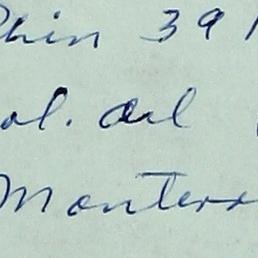 Rhin 39
ol. del
Monterr